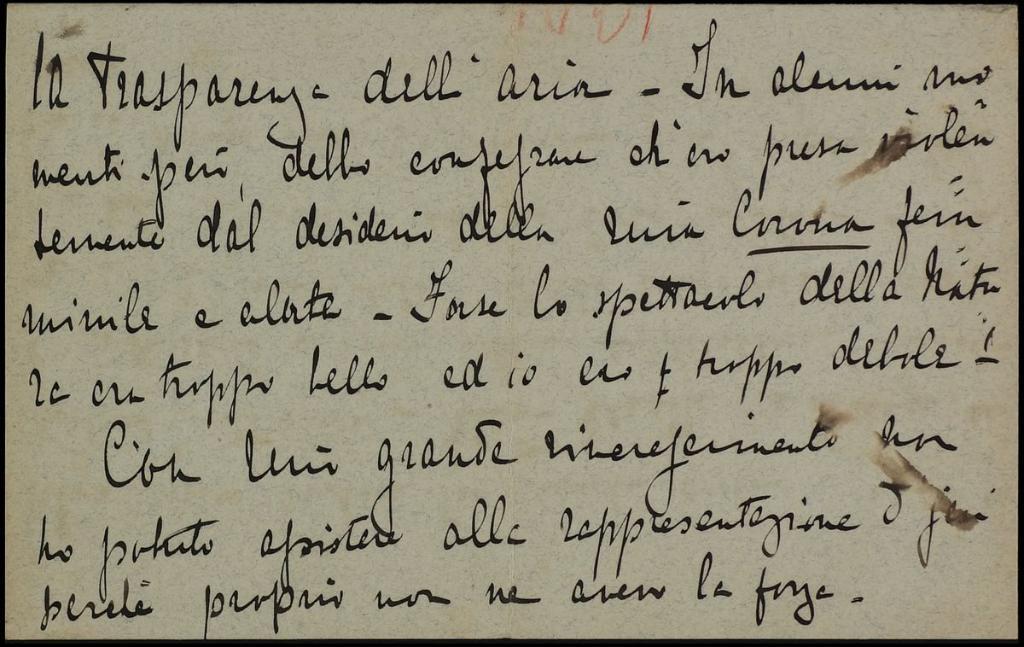 la trasparenza dell'aria - In alcuni mo
menti però, debbo confessare ch'ero presa violen
temente dal desiderio della mia Corona fem
minile e alata - Forse lo spettacolo della Natu
ra era troppo bello ed io ero troppo debole -
Con mio grande rincrescimento non
ho potuto assistere alla rappresentazione d'jeri
perchè proprio non ne avevo la forza -